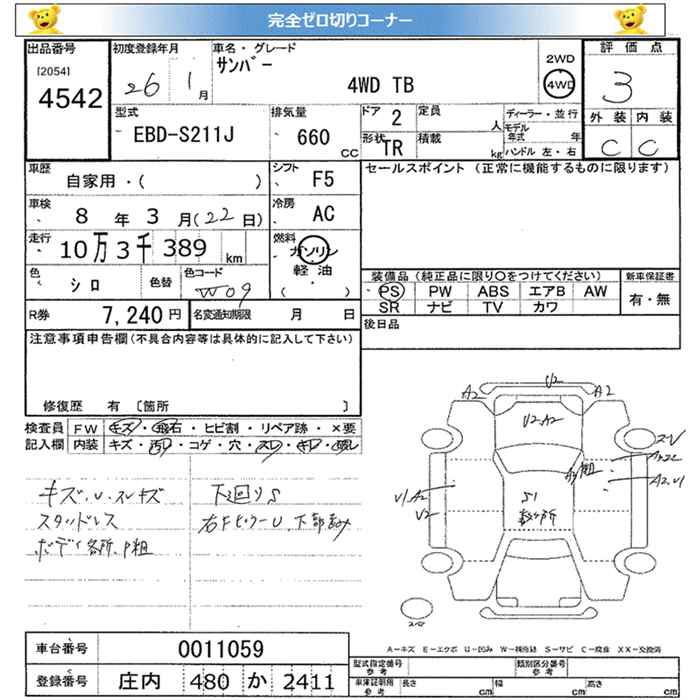 完全ゼロ切りコーナー
出品番号 初度登録年月 車名・グレード 評価点
[2054] サンバー 2WD
4542 26 1月 4WD TB 4WD 3
型式 排気量 ドア 2 定員 人 ディーラー・並行 外装 内装
EBD-S211J 660 CC 形状 TR 積載 kg モデル年式 年 C C
ハンドル 左・右
車歴 自家用・( ) シフト F5 セールスポイント (正常に機能するものに限ります)
車検 8年 3月(22日) 冷房 AC
走行 10万3千389 km 燃料 ガソリン
色 シロ 色替 色コード W09 軽油 ( ) 装備品 (純正品に限り○をつけてください) 新車保証書
PS PW ABS エアB AW 有・無
R券 7,240円 名変通知期限 月 日 SR ナビ TV カワ
注意事項申告欄(不具合内容等は具体的に記入して下さい) 後日品
修復歴 有 〔箇所 〕
検査員 FW キズ・飛石・ヒビ割・リペア跡・×要
記入欄 内装 キズ・汚れ・コゲ・穴・スレ・キレ・破レ
キズ・U・スレキズ 下回りS
スタッドレス 右FピラーU、下部凹み
ボディ各所、P粗
U2
A2 A2
U2.A2
U1.A2
U2
S1
数ヶ所
A2.U1
スペ
A-キズ E-エクボ U-凹み W-補修跡 S-サビ C-腐食 XX-交換済
車台番号 0011059
型式指定番号 参考 類別区分番号 参考
登録番号 庄内 480 か 2411
車庫証明用 参考 長さ cm 幅 cm 高さ cm